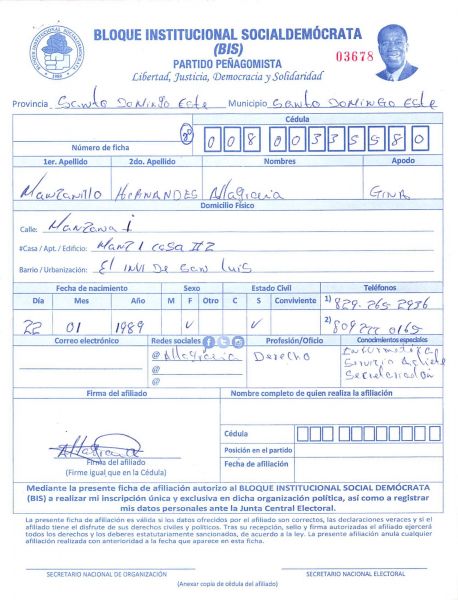 BLOQUE INSTITUCIONAL SOCIALDEMÓCRATA
(BIS)
PARTIDO PEÑAGOMISTA
Libertad, Justicia, Democracia y Solidaridad
03678
Provincia Santo Domingo Este Municipio Santo Domingo Este
Cédula
Número de ficha 00800335580
1er. Apellido 2do. Apellido Nombres Apodo
Manzanillo HERNANDES Altagracia GINA
Domicilio Físico
Calle: Manzana I
#Casa / Apt. / Edificio: Manz I casa #2
Barrio / Urbanización: El INVI De San Luis
Fecha de nacimiento Sexo Estado Civil Teléfonos
Día Mes Año M F Otro C S Conviviente
1) 829-265-2936
22 01 1989
2) 809
Correo electrónico Redes sociales Profesión/Oficio Conocimientos especiales
@Altagracia Derecho
@
@
Firma del afiliado Nombre completo de quien realiza la afiliación
Cédula
Posición en el partido
Fecha de afiliación
Firma del afiliado
(Firme igual que en la Cédula)
Mediante la presente ficha de afiliación autorizo al BLOQUE INSTITUCIONAL SOCIAL DEMÓCRATA
(BIS) a realizar mi inscripción única y exclusiva en dicha organización política, así como a registrar
mis datos personales ante la Junta Central Electoral.
La presente ficha de afiliación es válida si los datos ofrecidos por el afiliado son correctos, las declaraciones veraces y si el
afiliado tiene el disfrute de sus derechos civiles y políticos. Tras su recepción, sello y firma autorizadas el afiliado ejercerá
todos los derechos y los deberes estatutariamente sancionados, de acuerdo a la ley. La presente afiliación anula cualquier
afiliación realizada con anterioridad a la fecha que aparece en esta ficha.
SECRETARIO NACIONAL DE ORGANIZACIÓN SECRETARIO NACIONAL ELECTORAL
(Anexar copia de cédula del afiliado)